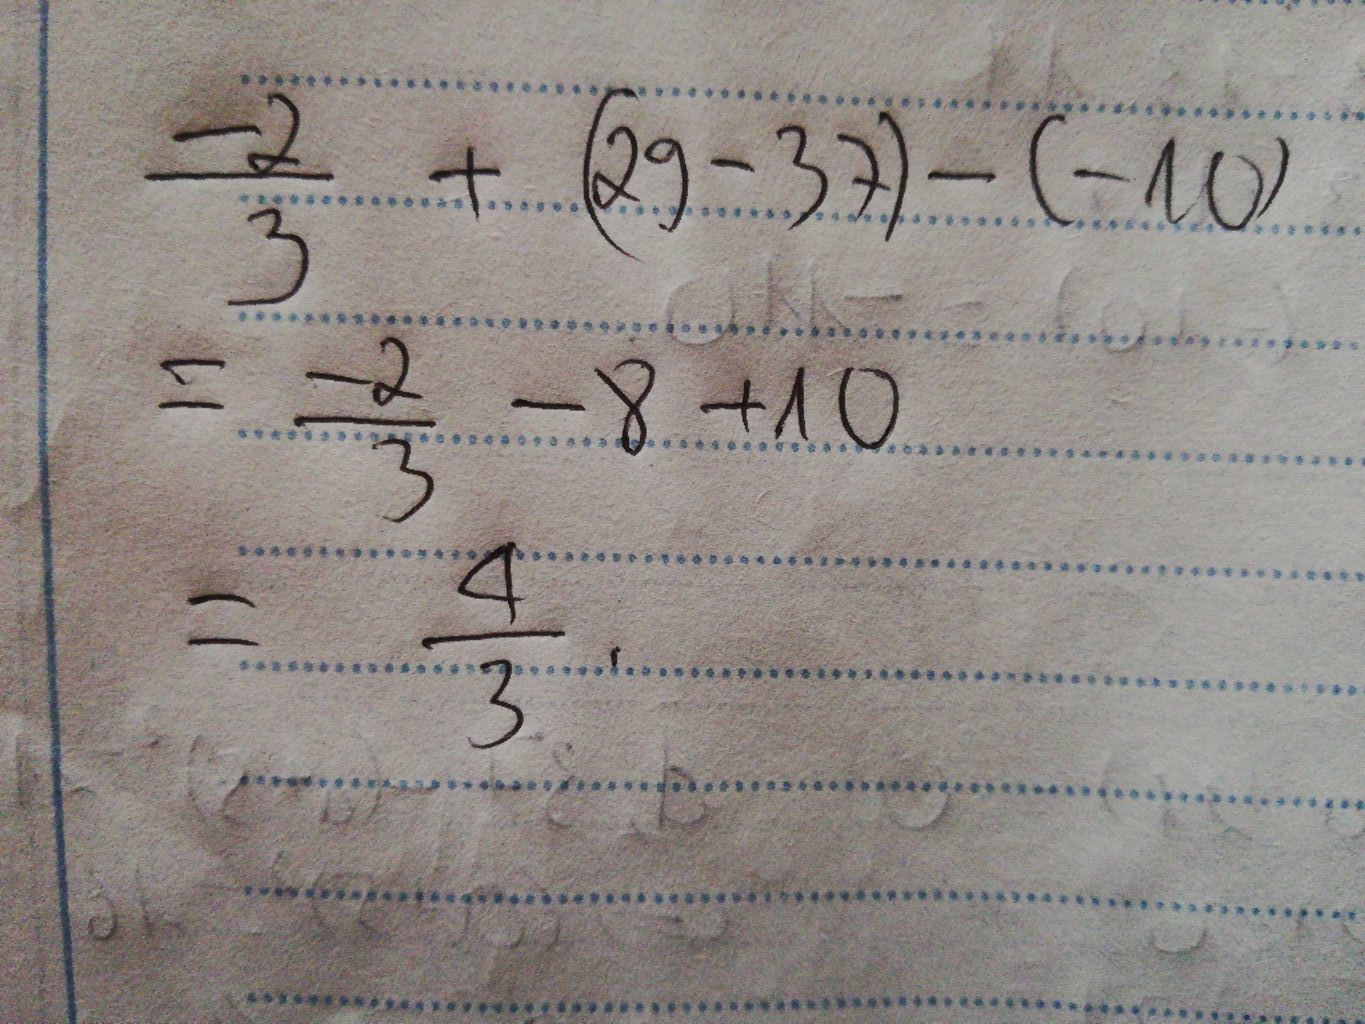 -2/3 + (29 - 37) - (-10)
= -2/3 - 8 + 10
= 4/3.